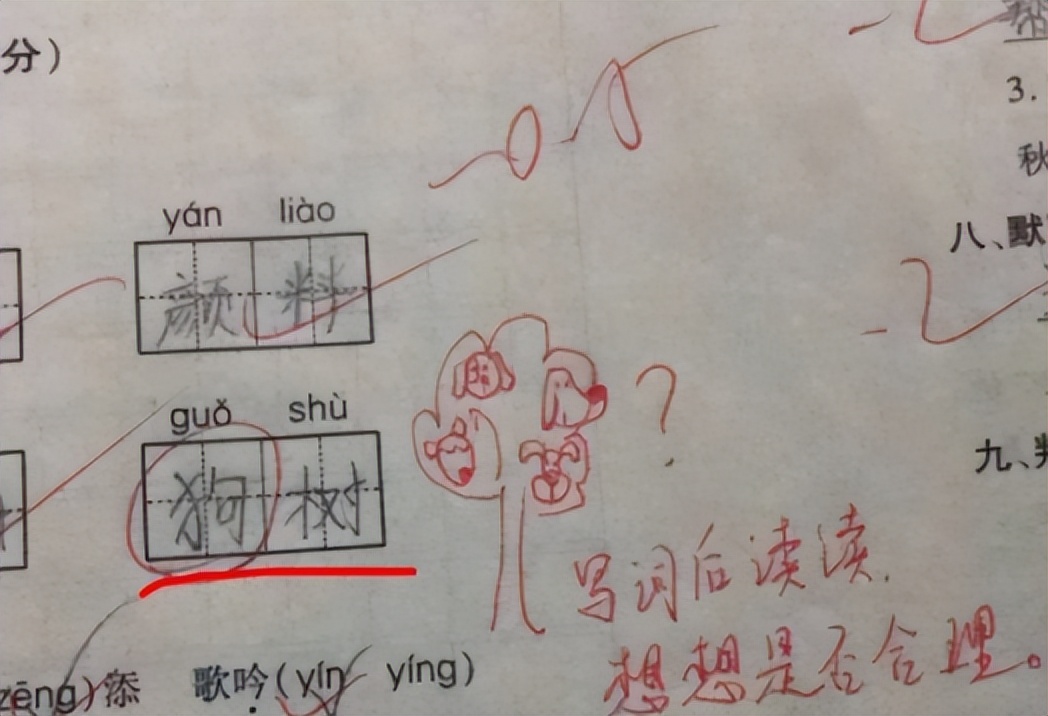 分）
yán liào
颜料
guǒ shù
狗树
?
写词后读读，
想想是否合理。
zēng)添 歌吟(yín yíng)
3.
秋
八、默
九、判